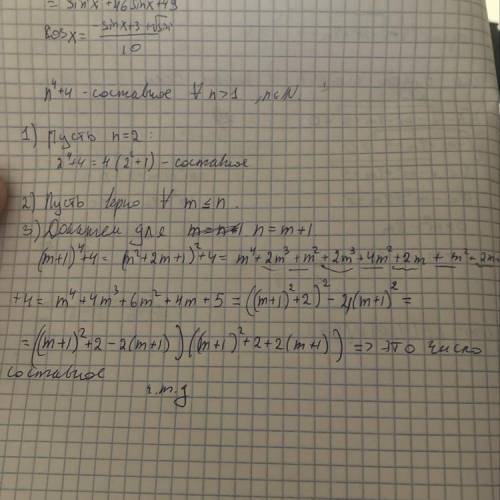 = sin²x + 46 sinx + 49
cosx = -sinx+3+√sin
10
n⁴+4 - составное ∀ n>1, n∈N.
1) Пусть n=2:
2⁴+4=4(2²+1) - составное
2) Пусть верно ∀ m≤n.
3) Докажем для n=m+1
(m+1)⁴+4= (m²+2m+1)²+4= m⁴+2m³+m²+2m³+4m²+2m+m²+2m+
+4= m⁴+4m³+6m²+4m+5 = ((m+1)²+2)²-4(m+1)²=
=((m+1)²+2-2(m+1))((m+1)²+2+2(m+1)) => это число
составное
ч.т.д